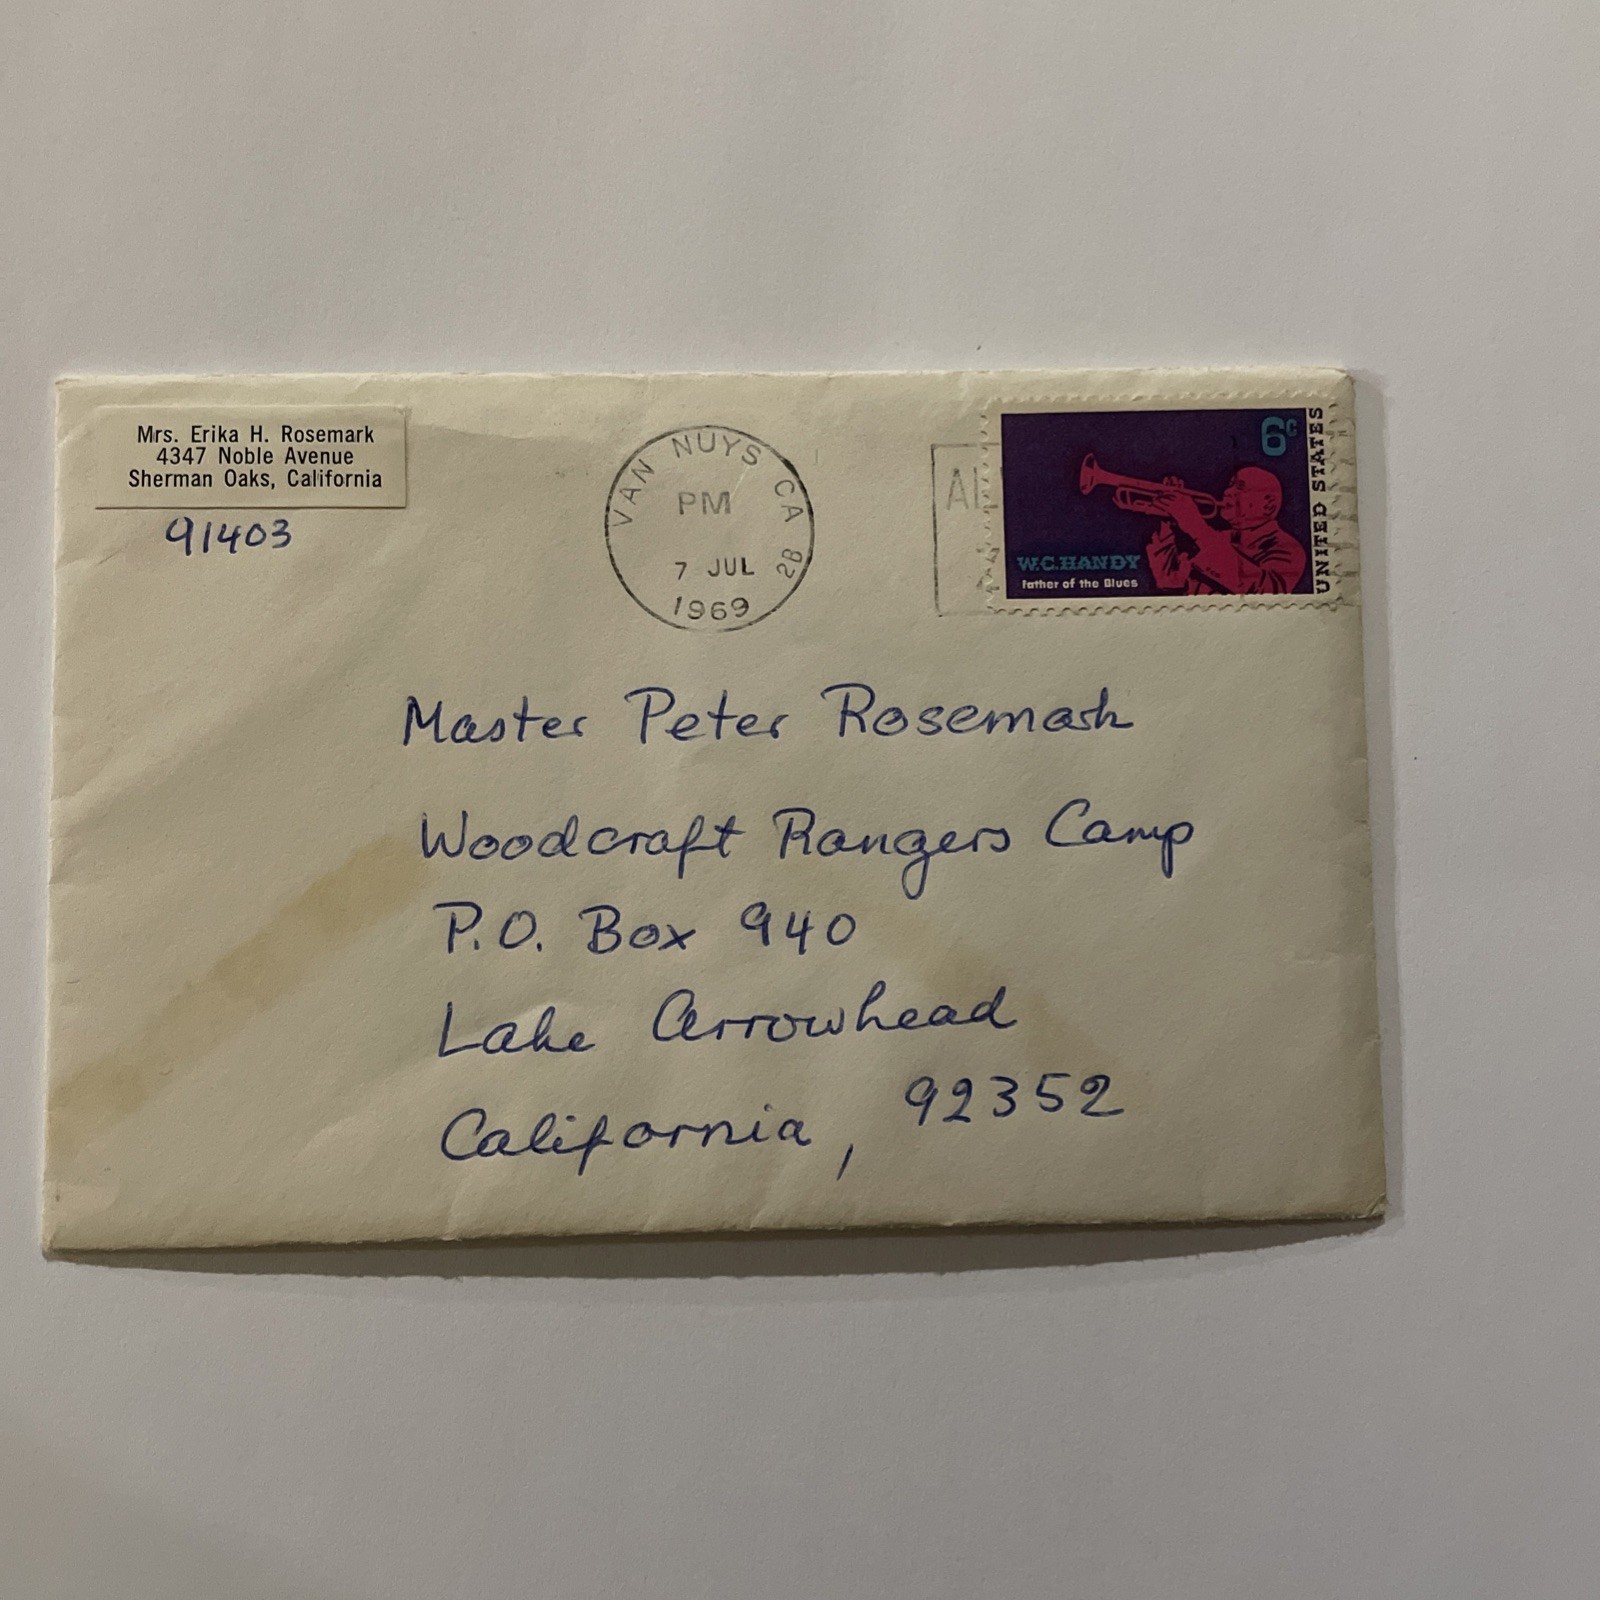 Mrs. Erika H. Rosemark
4347 Noble Avenue
Sherman Oaks, California
91403
VAN NUYS CA
PM
7 JUL
1969
28
6c
UNITED STATES
W.C. HANDY
Father of the Blues
Master Peter Rosemark
Woodcraft Rangers Camp
P.O. Box 940
Lake Arrowhead
California, 92352